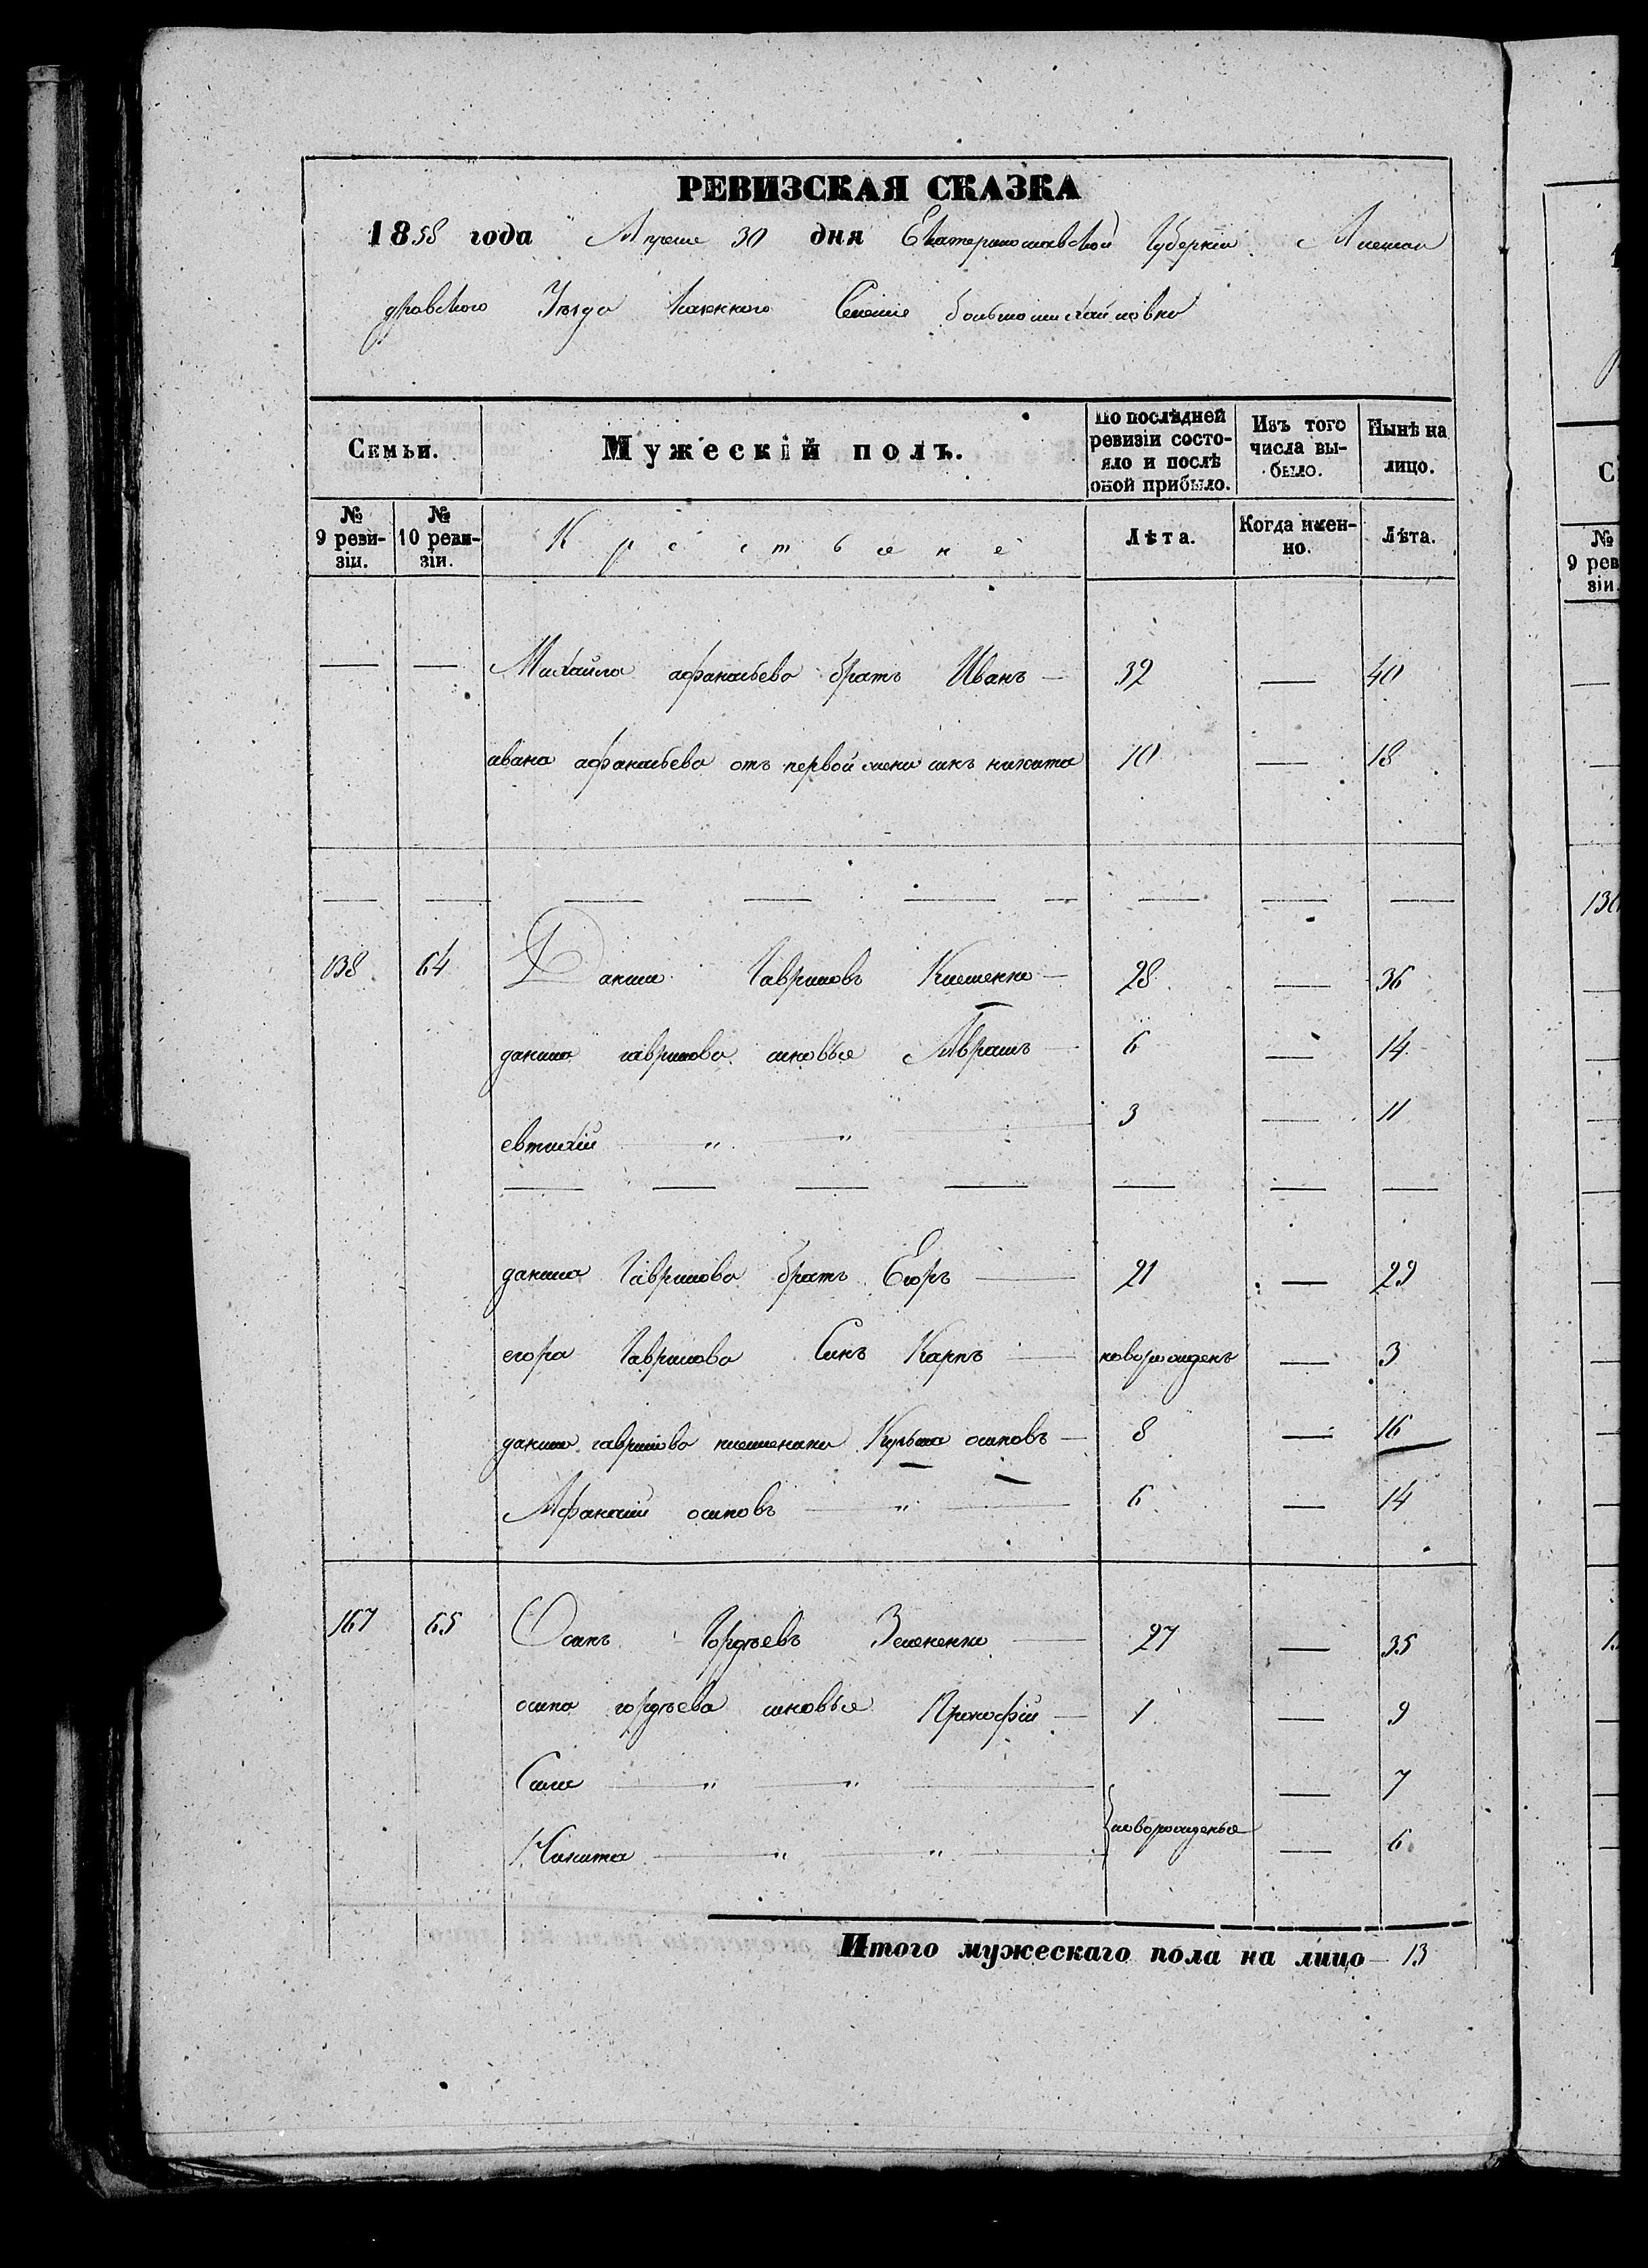 РЕВИЗСКАЯ СКАЗКА
1858 года Апреля 30 дня Екатеринославской Губернiи Алексан
дровского Уѣзда Казенного Селенiя большомихайловки
Семьи. Мужескiй полъ. По послѣдней ревизiи состояло и послѣ оной прибыло. Изъ того числа выбыло. Нынѣ на лицо.
№ 9 ревизiи. № 10 ревизiи. Крестьяне Лѣта. Когда именно. Лѣта.
— — Михайла афанасьева братъ Иванъ — 32 — 40
ивана афанасьева отъ первой жени синъ никита 10 — 18
138 64 Данило Гавриловъ Клименко — 28 — 36
данила гаврилова синовья Абрамъ — 6 — 14
евтихiй — " — " — 3 — 11
данила Гаврилова братъ Егоръ — 21 — 29
егора Гаврилова Синъ Карпъ — новорожденъ — 3
данила гаврилова племеники Кузьма осиповъ — 8 — 16
Афанасiй осиповъ — " — 6 — 14
167 65 Осипъ Гордѣевъ Зеленко — 27 — 35
осипа гордѣева синовья Прокофiй — 1 — 9
Сила — " — " — — 7
Никита — " — " — новорожденые — 6
Итого мужескаго пола на лицо — 13
130
С
№ 9 рев
зiи.